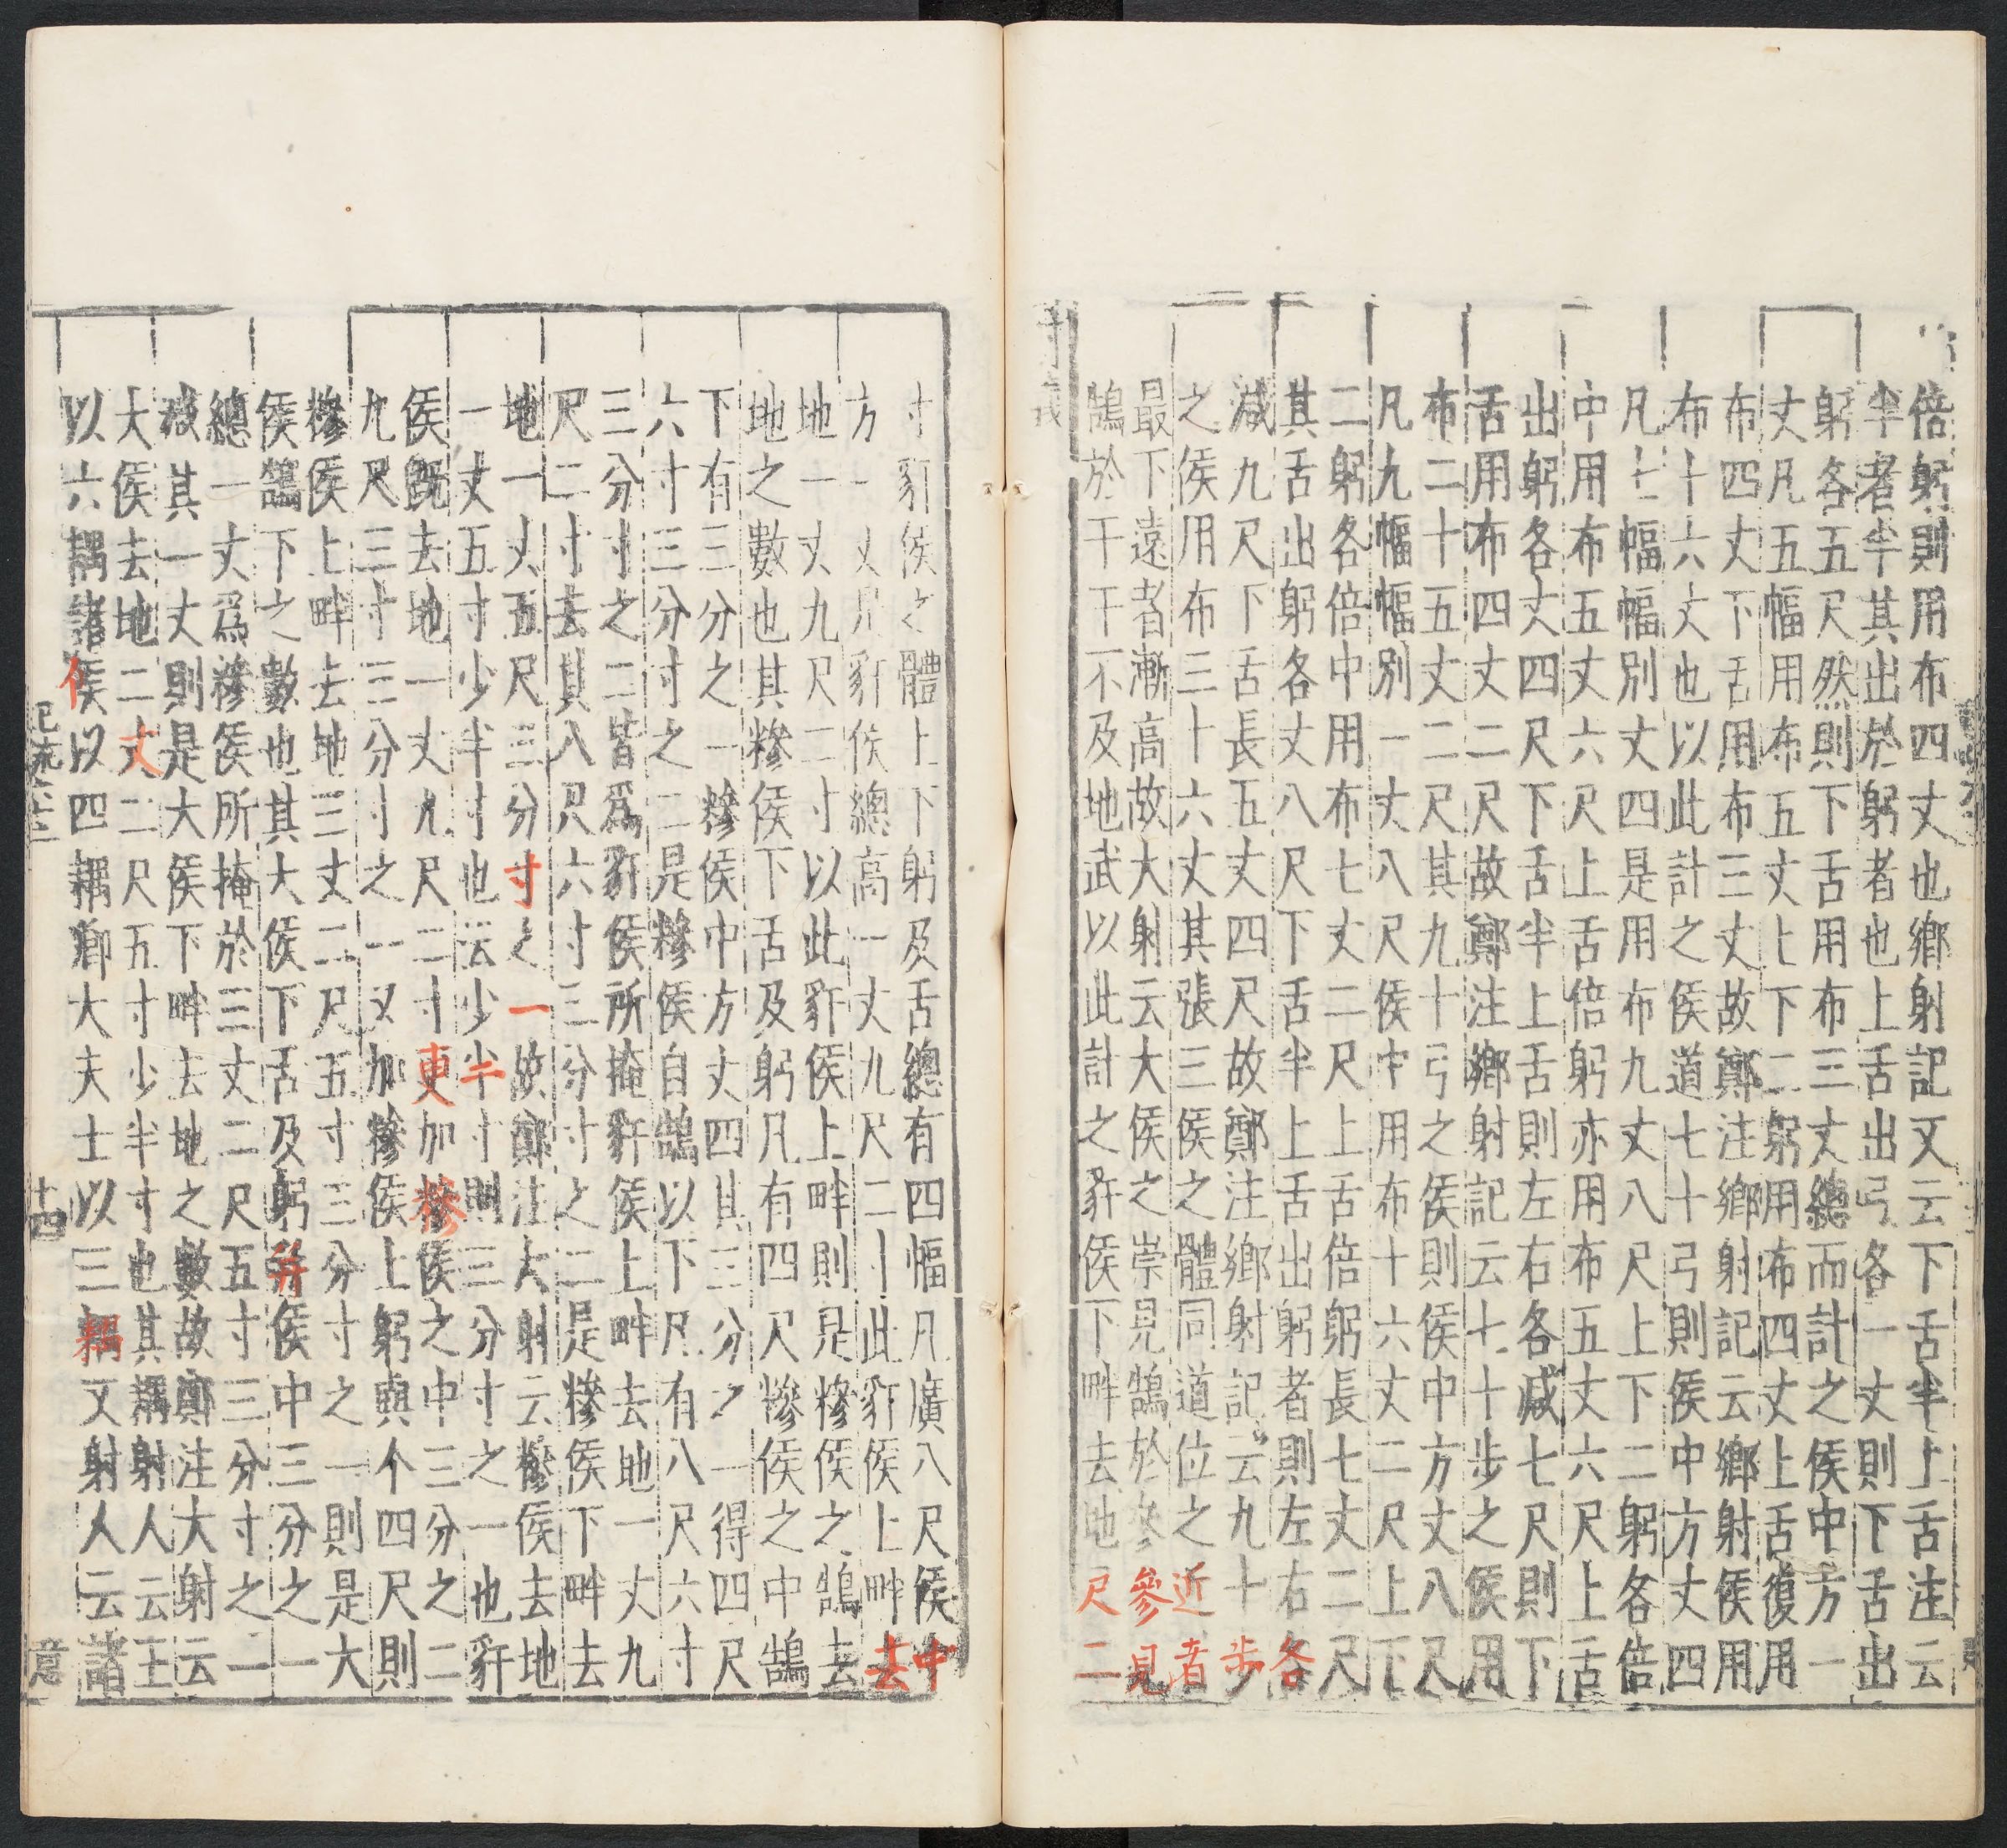 倍躬則用布四丈也鄉射記又云下舌半上舌注云
半者半其出於躬者也上舌出弓各一丈則下舌出
躬各五尺然則下舌用布三丈總而計之侯中方一
丈凡五幅用布五丈上下二躬用布四丈上舌復用
布四丈下舌用布三丈故鄭注鄉射記云鄉射侯用
布十六丈也以此計之侯道七十弓則侯中方丈四
凡七幅幅別丈四是用布九丈八尺上下二躬各倍
中用布五丈六尺上舌倍躬亦用布五丈六尺上舌
出躬各丈四尺下舌半上舌則左右各減七尺則下
舌用布四丈二尺故鄭注鄉射記云七十步之侯用
布二十五丈二尺其九十弓之侯則侯中方丈八尺
凡九幅幅別一丈八尺侯中用布十六丈二尺上下
二躬各倍中用布七丈二尺上舌倍躬長七丈二尺
其舌出躬各丈八尺下舌半上舌出躬者則左右各
減九尺下舌長五丈四尺故鄭注鄉射記云九十步
之侯用布三十六丈其張三侯之體同道位之近者
最下遠者漸高故大射云大侯之崇見鵠於參參見
鵠於干干不及地武以此計之豻侯下畔去地尺二
寸豻侯之體上下躬及舌總有四幅凡廣八尺侯中
方一丈凡豻侯總高一丈九尺二寸此豻侯上畔去
地一丈九尺二寸以此豻侯上畔則是糝侯之鵠去
地之數也其糝侯下舌及躬凡有四尺糝侯之中鵠
下有三分之一糝侯中方丈四其三分之一得四尺
六寸三分寸之二是糝侯自鵠以下凡有八尺六寸
三分寸之二皆爲豻侯所掩豻侯上畔去地一丈九
尺二寸去其八尺六寸三分寸之二是糝侯下畔去
地一丈五尺三分寸之一故鄭注大射云糝侯去地
一丈五寸少半寸也云少半寸則三分寸之一也豻
侯既去地一丈九尺二寸更加糝侯之中三分之二
九尺三寸三分寸之一又加糝侯上躬與个四尺則
糝侯上畔去地三丈二尺五寸三分寸之一則是大
侯鵠下之數也其大侯下舌及躬并侯中三分之一
總一丈爲糝侯所掩於三丈二尺五寸三分寸之一
減其一丈則是大侯下畔去地之數故鄭注大射云
大侯去地二丈二尺五寸少半寸也其耦射人云王
以六耦諸侯以四耦鄉大夫士以三耦又射人云諸
十四